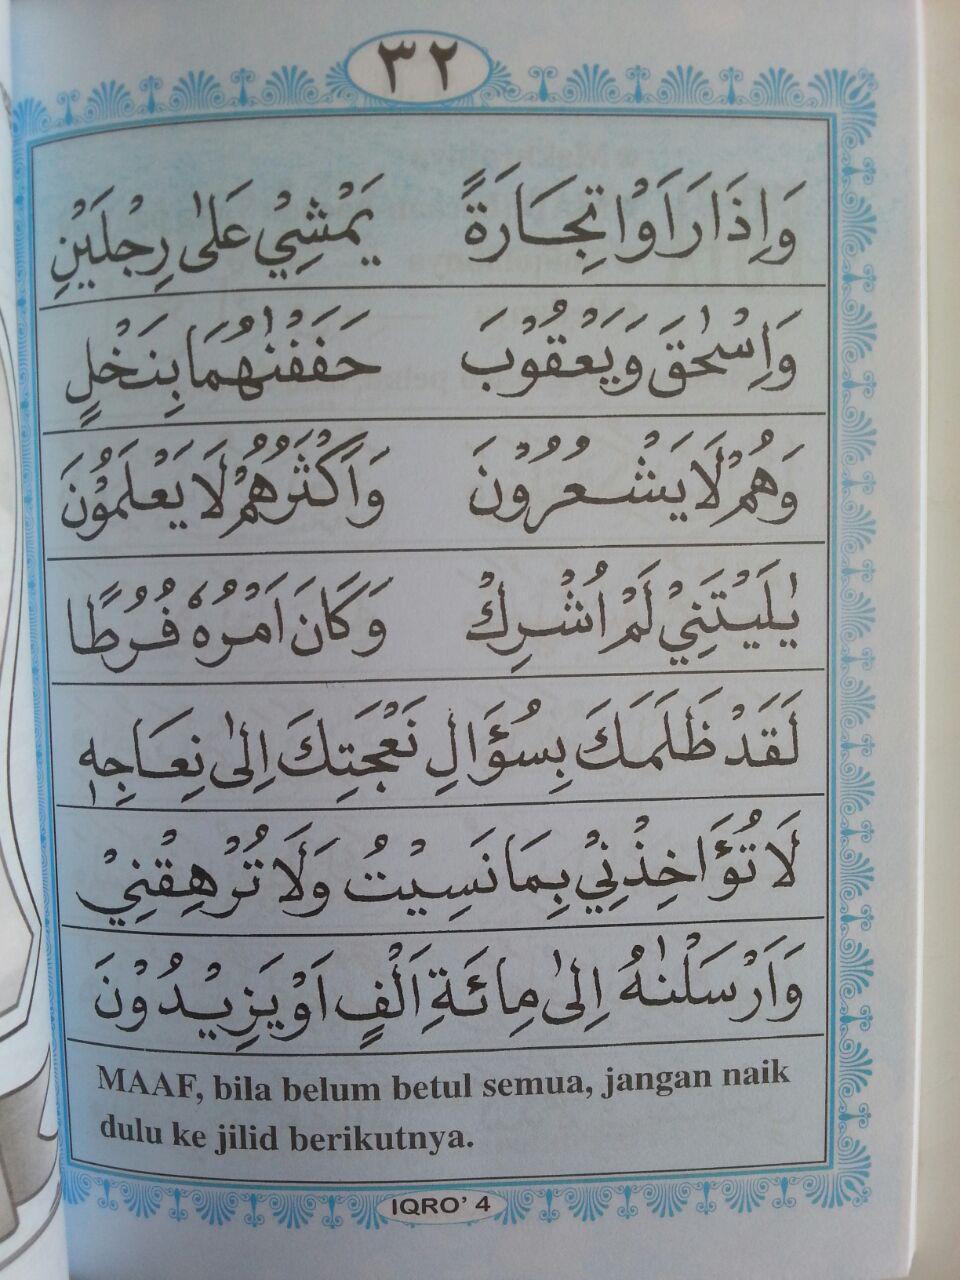 ٣٢
وَاِذَا رَاَوْا تِجَارَةً يَمْشِيْ عَلٰى رِجْلَيْنِ
وَاِسْحٰقَ وَيَعْقُوْبَ حَفَفْنٰهُمَا بِنَخْلٍ
وَهُمْ لَا يَشْعُرُوْنَ وَاَكْثَرُهُمْ لَا يَعْلَمُوْنَ
يٰلَيْتَنِيْ لَمْ اُشْرِكْ وَكَانَ اَمْرُهٗ فُرُطًا
لَقَدْ ظَلَمَكَ بِسُؤَالِ نَعْجَتِكَ اِلٰى نِعَاجِهٖ
لَا تُؤَاخِذْنِيْ بِمَا نَسِيْتُ وَلَا تُرْهِقْنِيْ
وَاَرْسَلْنٰهُ اِلٰى مِائَةِ اَلْفٍ اَوْ يَزِيْدُوْنَ
MAAF, bila belum betul semua, jangan naik
dulu ke jilid berikutnya.
IQRO' 4